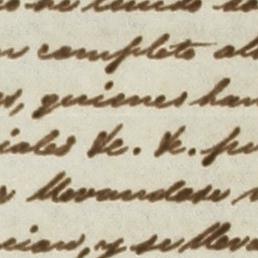 n completo al
s, quienes han
iales &c. &. pu
r llevandose
cian, y se lleva